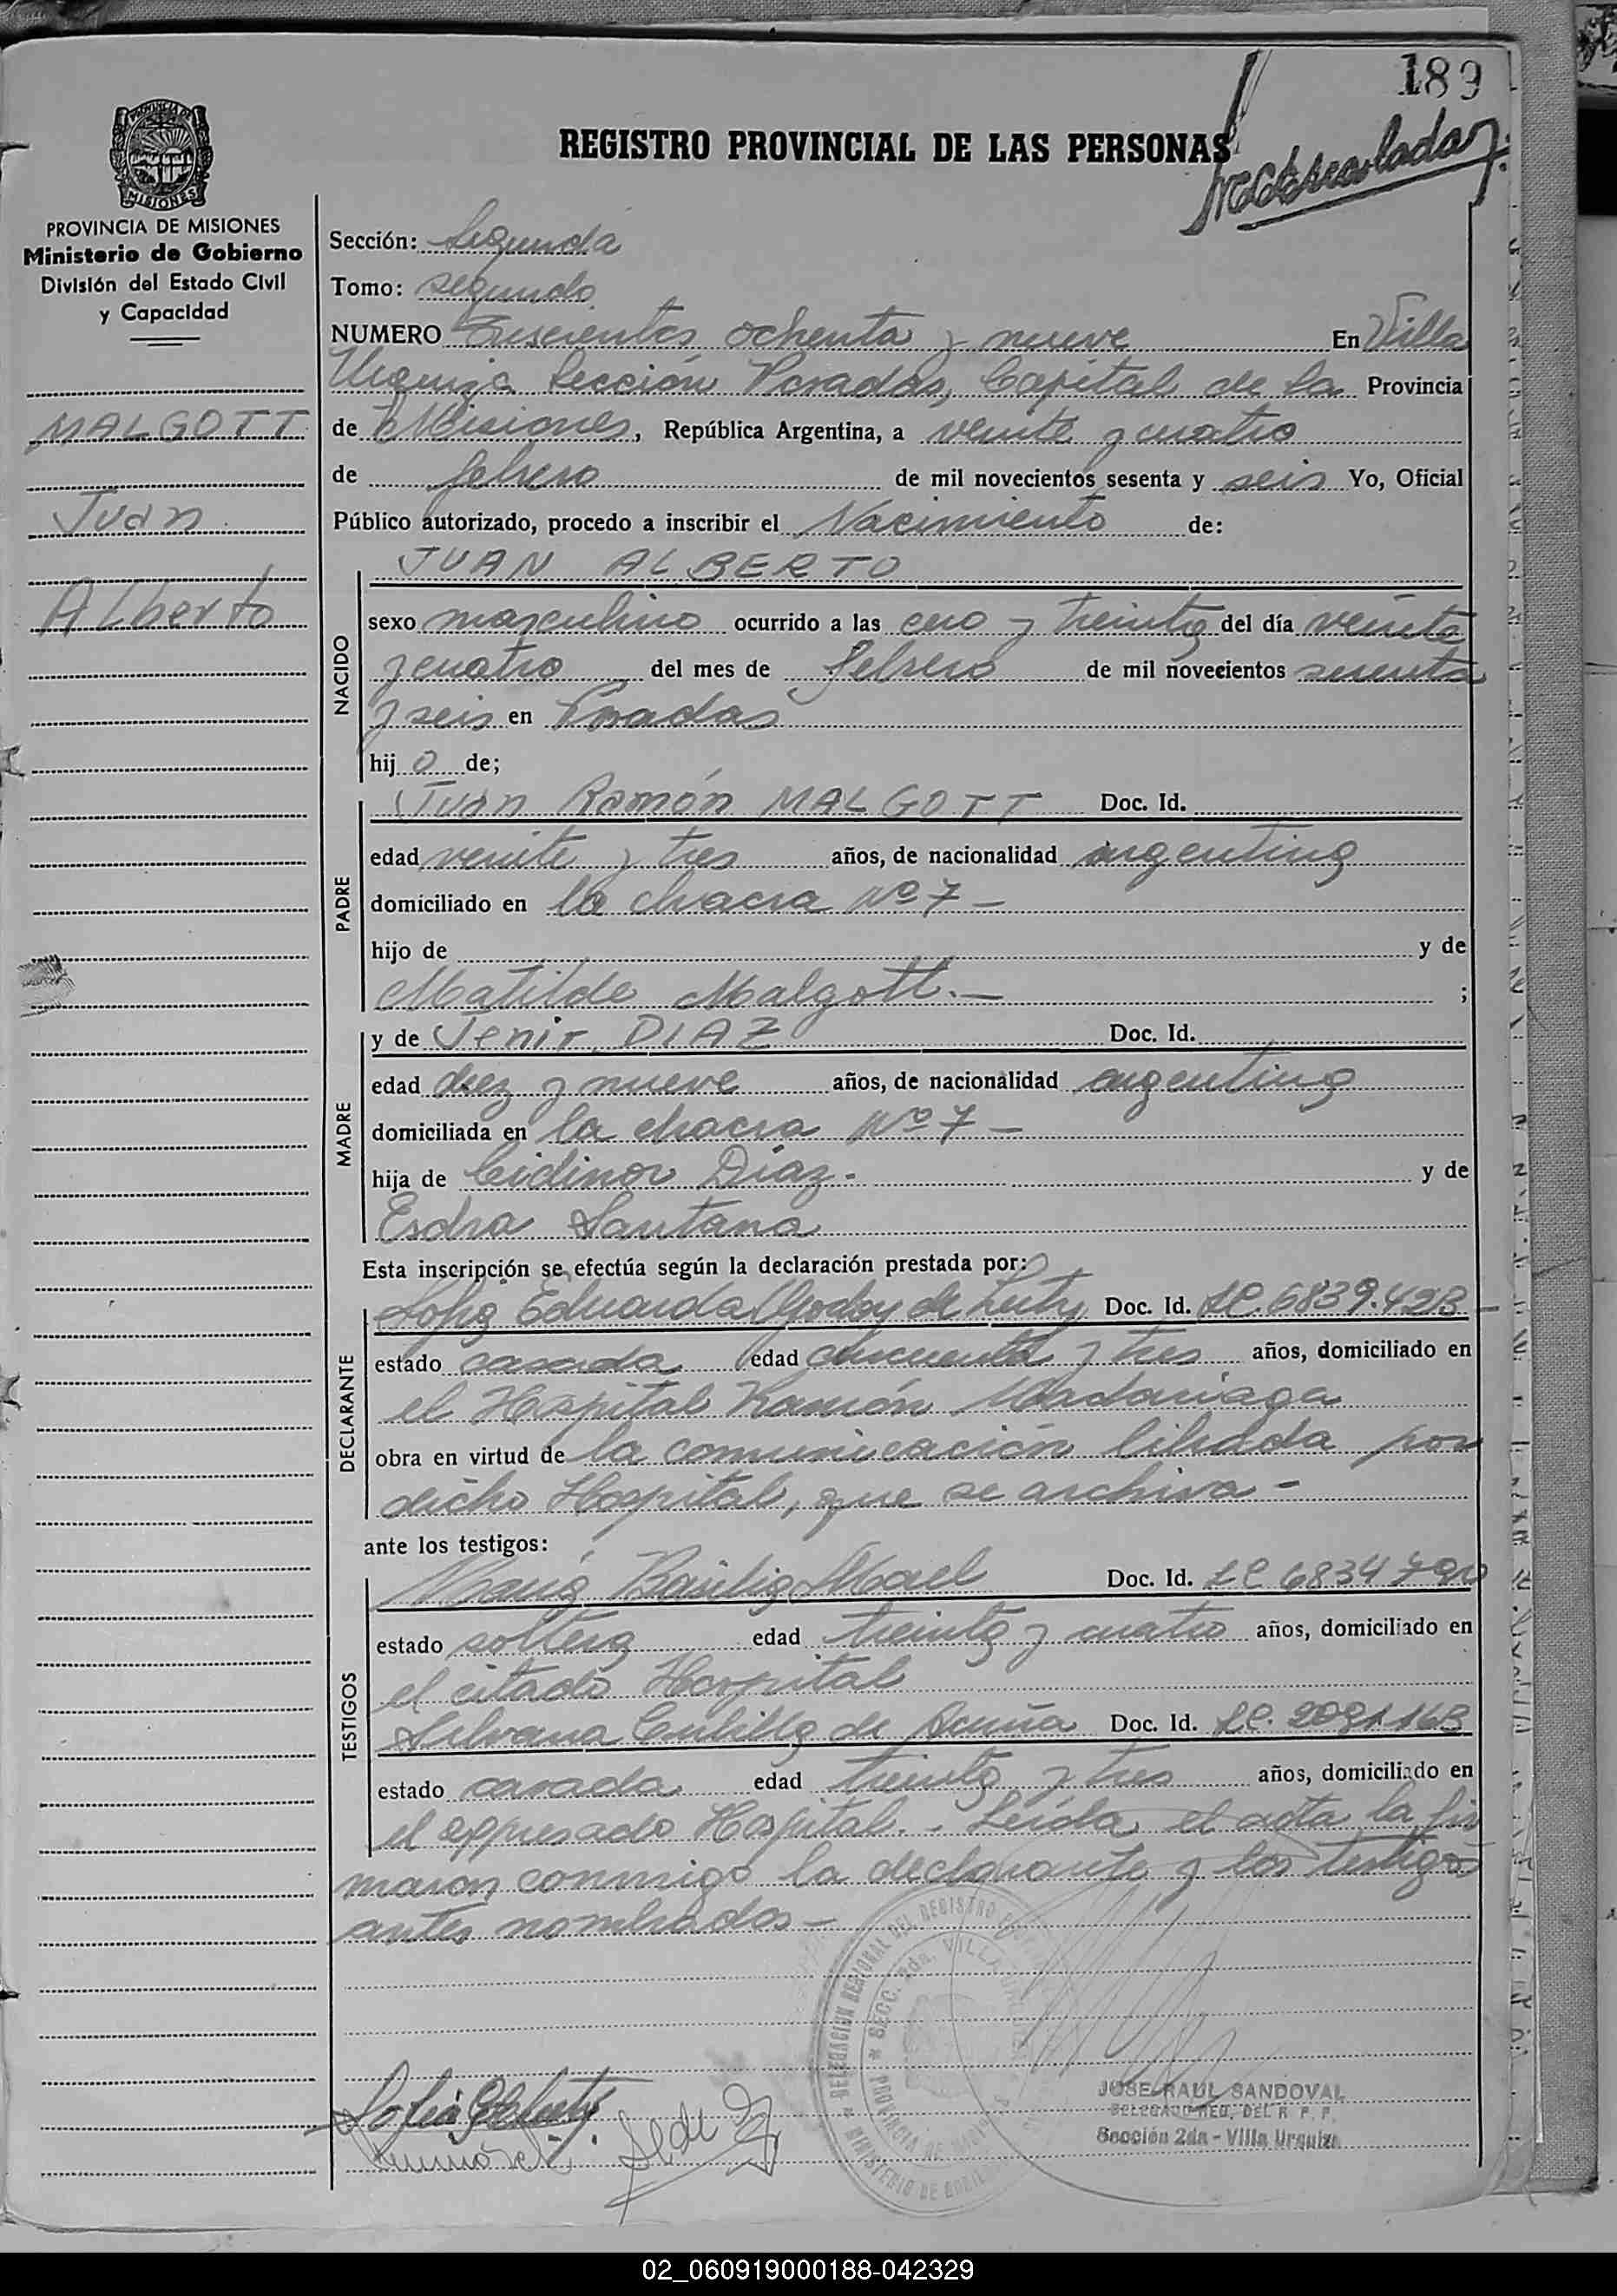 189
REGISTRO PROVINCIAL DE LAS PERSONAS
MISIONES
PROVINCIA DE MISIONES
Ministerio de Gobierno
División del Estado Civil
y Capacidad
MALGOTT
Juan
Alberto
Sección: Segunda
Tomo: segundo
NUMERO ochenta y nueve En Villa
Urquiza Sección Posadas, Capital de la Provincia
de Misiones, República Argentina, a veinte y cuatro
de febrero de mil novecientos sesenta y seis Yo, Oficial
Público autorizado, procedo a inscribir el Nacimiento de:
JUAN ALBERTO
NACIDO
sexo masculino ocurrido a las cero y treinta del día veinte
y cuatro del mes de febrero de mil novecientos sesenta
y seis en Posadas
hijo de;
PADRE
Juan Ramón MALGOTT Doc. Id.
edad veinte y tres años, de nacionalidad argentina
domiciliado en la chacra Nº 7 -
hijo de y de
Matilde Malgott.- ;
MADRE
y de Jenir DIAZ Doc. Id.
edad diez y nueve años, de nacionalidad argentina
domiciliada en la chacra Nº 7 -
hija de Cidinor Diaz. y de
Esdra Santana
Esta inscripción se efectúa según la declaración prestada por:
DECLARANTE
Sofia Eduarda Godoy de Doc. Id. LC. 6839.423 -
estado casada edad cincuenta y tres años, domiciliado en
el Hospital Ramón Madariaga
obra en virtud de la comunicación librada por
dicho Hospital, que se archiva -
ante los testigos:
TESTIGOS
María Basilia Doc. Id. LC 6834
estado soltera edad treinta y cuatro años, domiciliado en
el citado Hospital
Silvana de Acuña Doc. Id. LC. 2091163
estado casada edad treinta y tres años, domiciliado en
el expresado Hospital. - Leída el acta la fir
maron conmigo la declarante y los testigos
antes nombrados -
DELEGACION REGIONAL DEL REGISTRO
SECC. 2da. VILLA URQUIZA
PROVINCIA DE MISIONES
MINISTERIO DE
JOSE RAUL SANDOVAL
DELEGADO REG. DEL R. P. P.
Sección 2da - Villa Urquiza
02_060919000188-042329